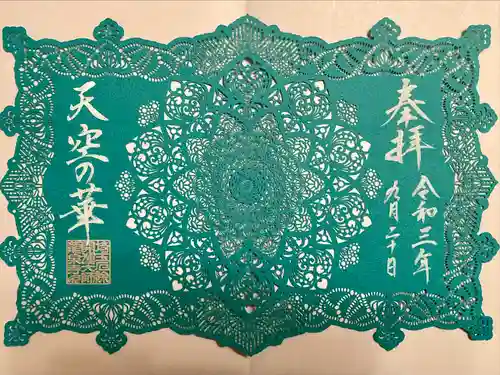 奉拝
令和三年
九月二十日
天空の華